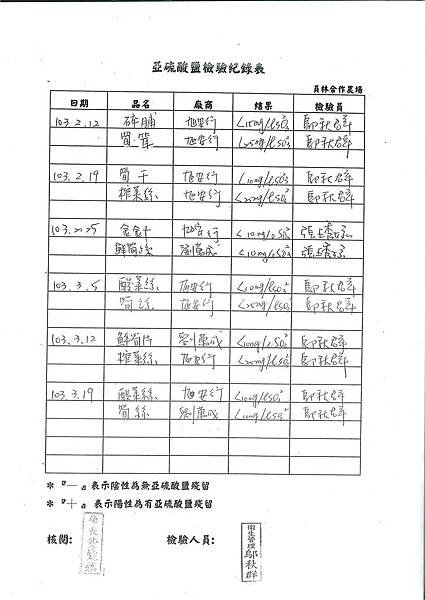 亞硫酸鹽檢驗紀錄表
員林合作農場
日期 品名 廠商 結果 檢驗員
103.2.12 碎脯 旭安行 <10mg/ℓSO₃² 鄔秋群
筍茸 旭安行 <25mg/ℓSO₃² 鄔秋群
103.2.19 筍干 旭安行 <10mg/ℓSO₃² 鄔秋群
榨菜絲 旭安行 <25mg/ℓSO₃² 鄔秋群
103.2.25 旭安行 <10mg/ℓSO₃²
鮮筍絲 劉萬成 <10mg/ℓSO₃²
103.3.5 酸菜絲 旭安行 <10mg/ℓSO₃² 鄔秋群
筍絲 旭安行 <25mg/ℓSO₃² 鄔秋群
103.3.12 鮮筍片 劉萬成 <10mg/ℓSO₃² 鄔秋群
榨菜絲 旭安行 <25mg/ℓSO₃² 鄔秋群
103.3.19 酸菜絲 旭安行 <10mg/ℓSO₃² 鄔秋群
筍絲 劉萬成 <10mg/ℓSO₃² 鄔秋群
※『—』表示陰性為無亞硫酸鹽殘留
※『十』表示陽性為有亞硫酸鹽殘留
核閱: 檢驗人員:
衛生管理
鄔秋群